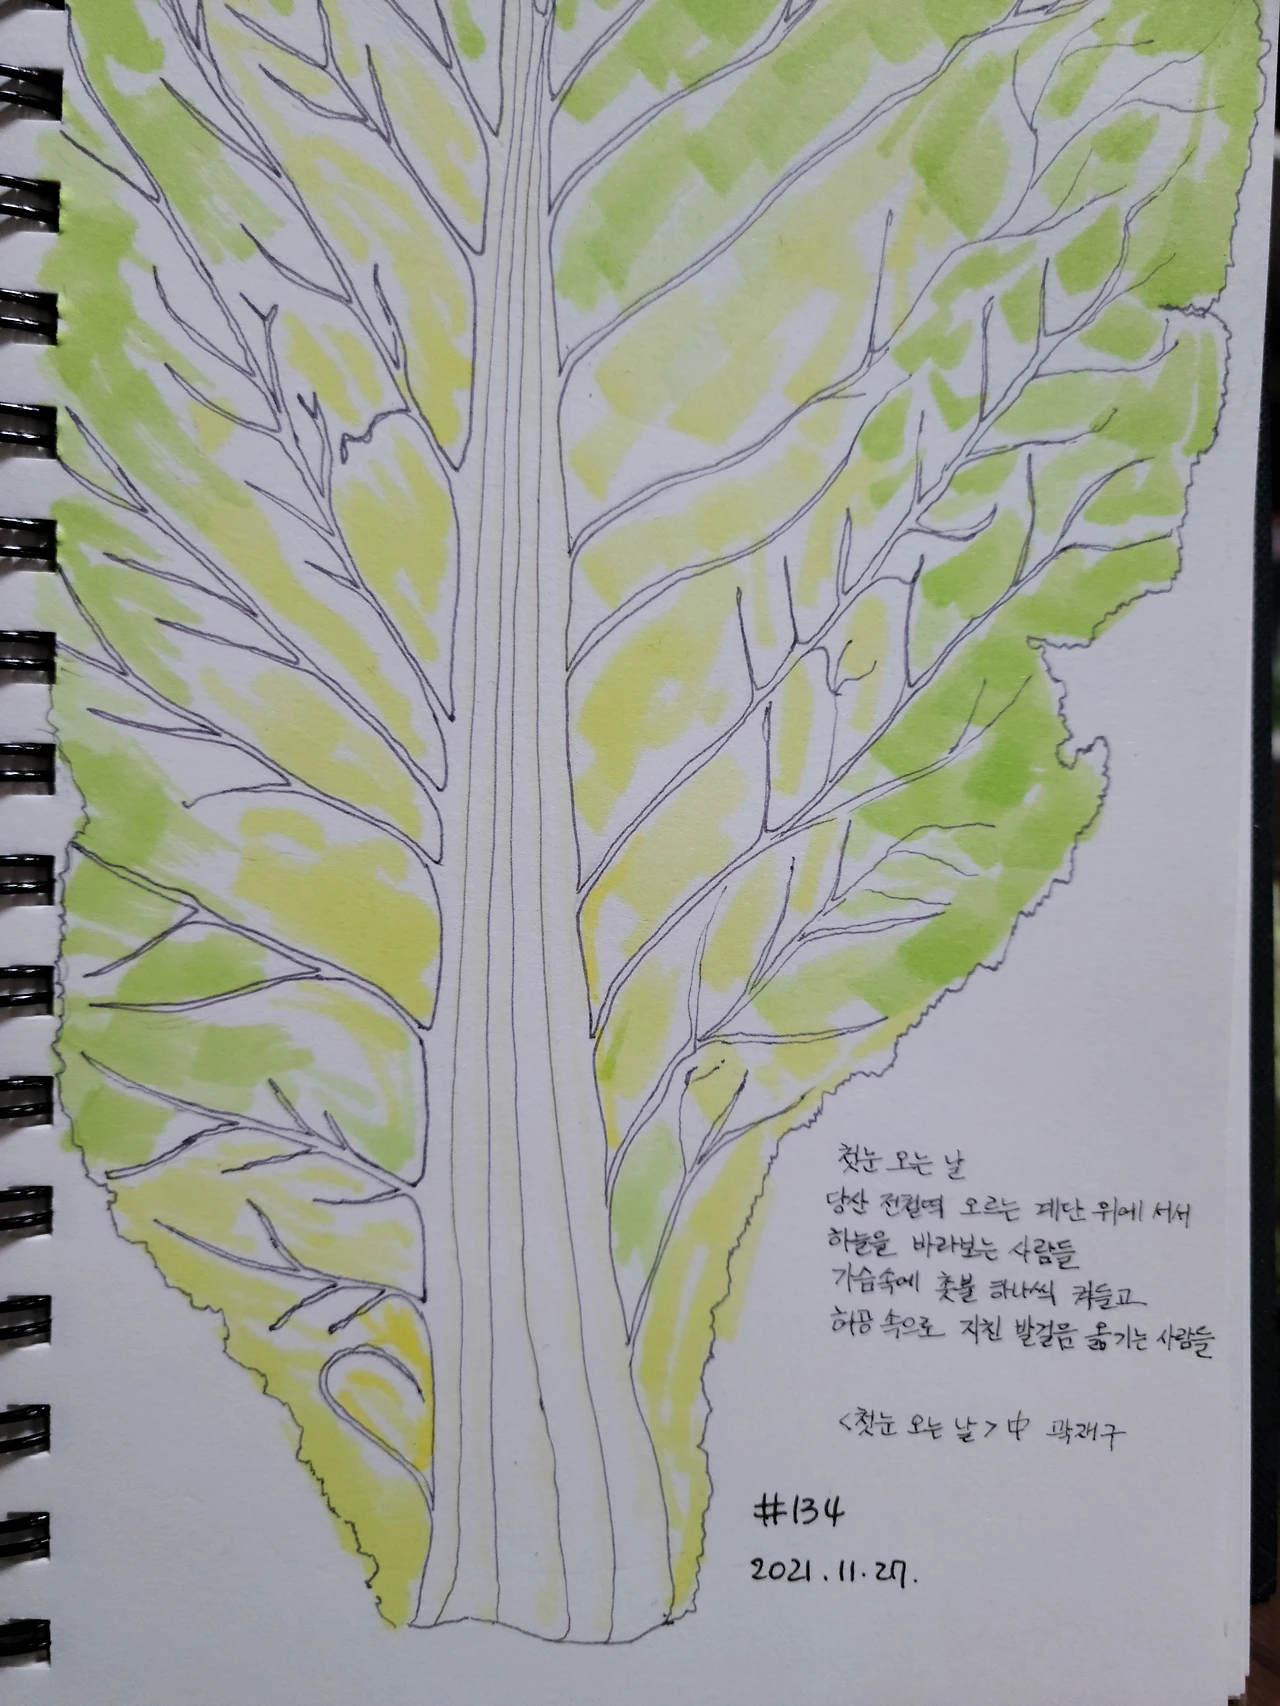 첫눈 오는 날
당산 전철역 오르는 계단 위에 서서
하늘을 바라보는 사람들
가슴속에 촛불 하나씩 켜들고
허공 속으로 지친 발걸음 옮기는 사람들
<첫눈 오는 날> 中 곽재구
#134
2021.11.27.